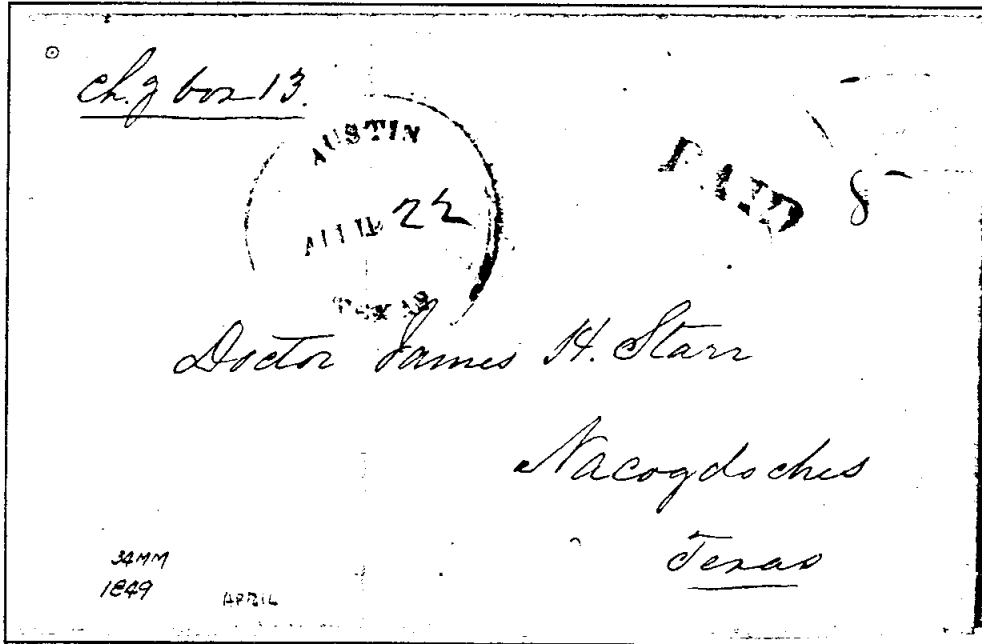 Chg box 13.
AUSTIN
22
TEXAS
PAID
8
Doctor James H. Starr
Nacogdoches
Texas
34MM
1849
APRIL